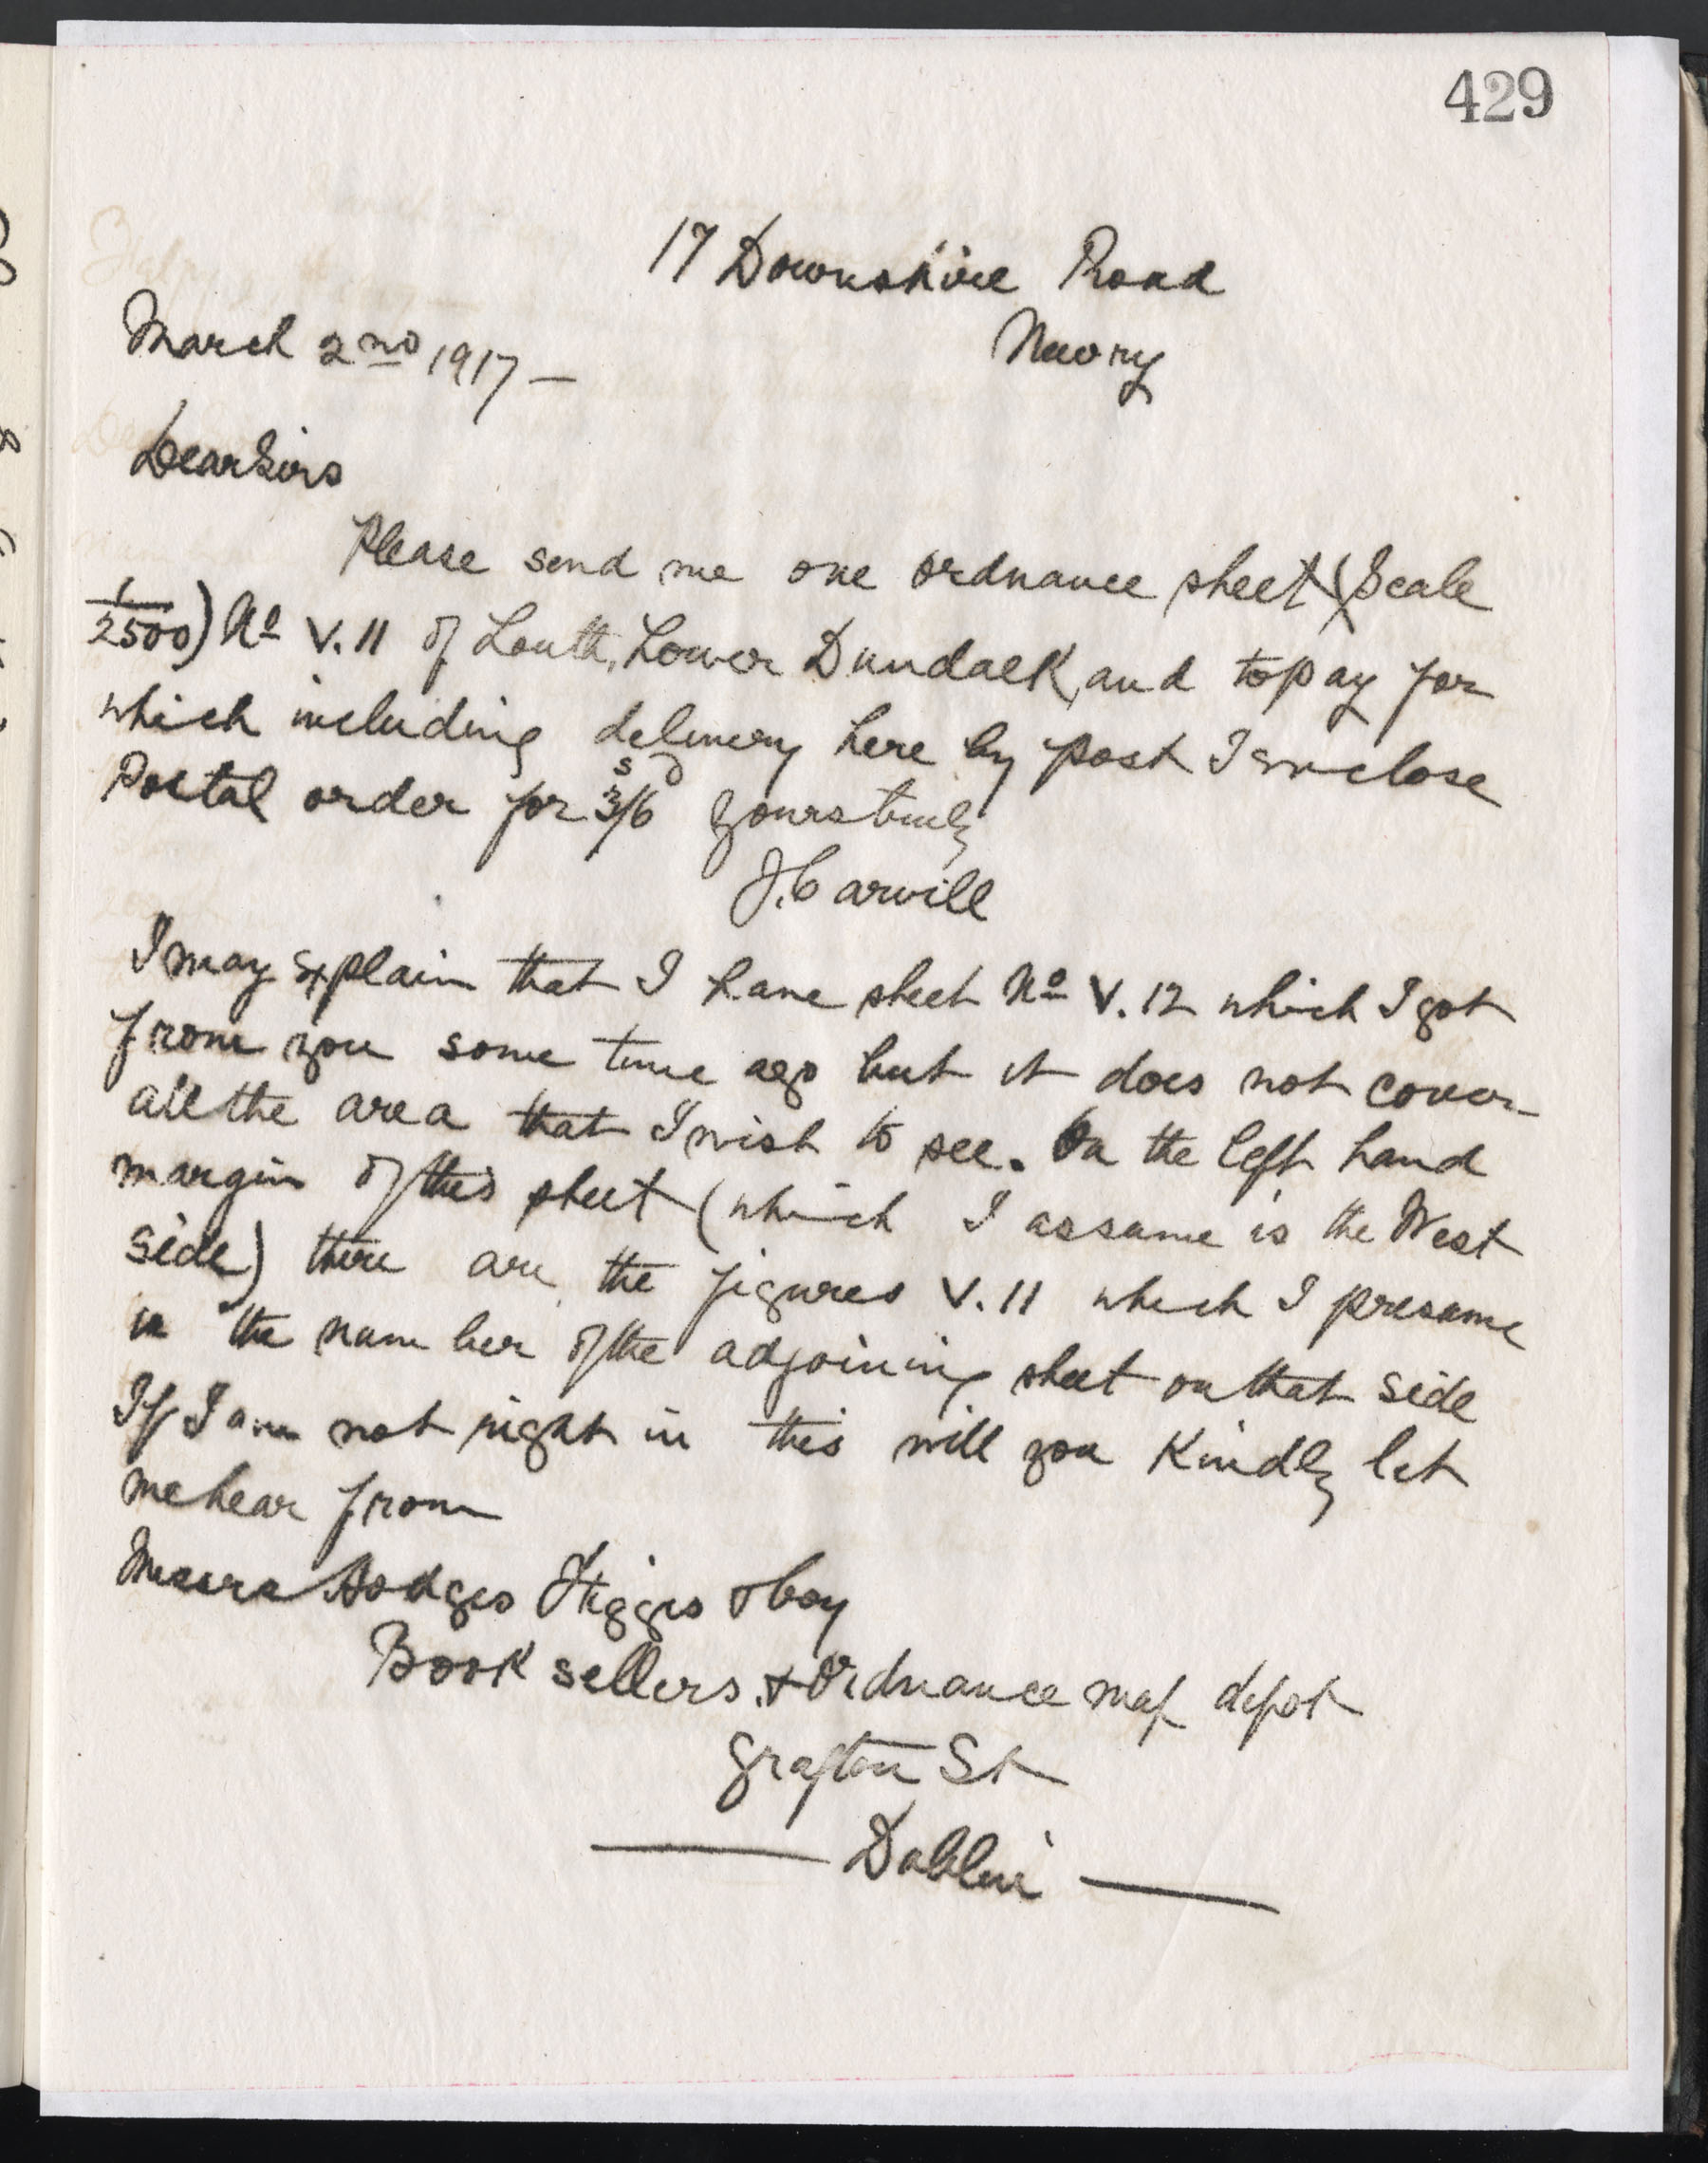 429
17 Downshire Road
Newry
March 2nd 1917 —
Dear Sirs
Please send me one ordnance sheet (Scale
1/2500) No V.11 of Louth, Lower Dundalk, and to pay for
which including delivery here by post I enclose
Postal order for 3s/6d Yours truly
J. Carvill
I may explain that I have sheet No V.12 which I got
from you some time ago but it does not cover
all the area that I wish to see. On the left hand
margin of this sheet (which I assume is the West
side) there are the figures V.11 which I presume
is the number of the adjoining sheet on that side
If I am not right in this will you Kindly let
me hear from
Messrs Hodges Figgis & Coy
Book sellers & Ordnance map depot
Grafton St
— Dublin —